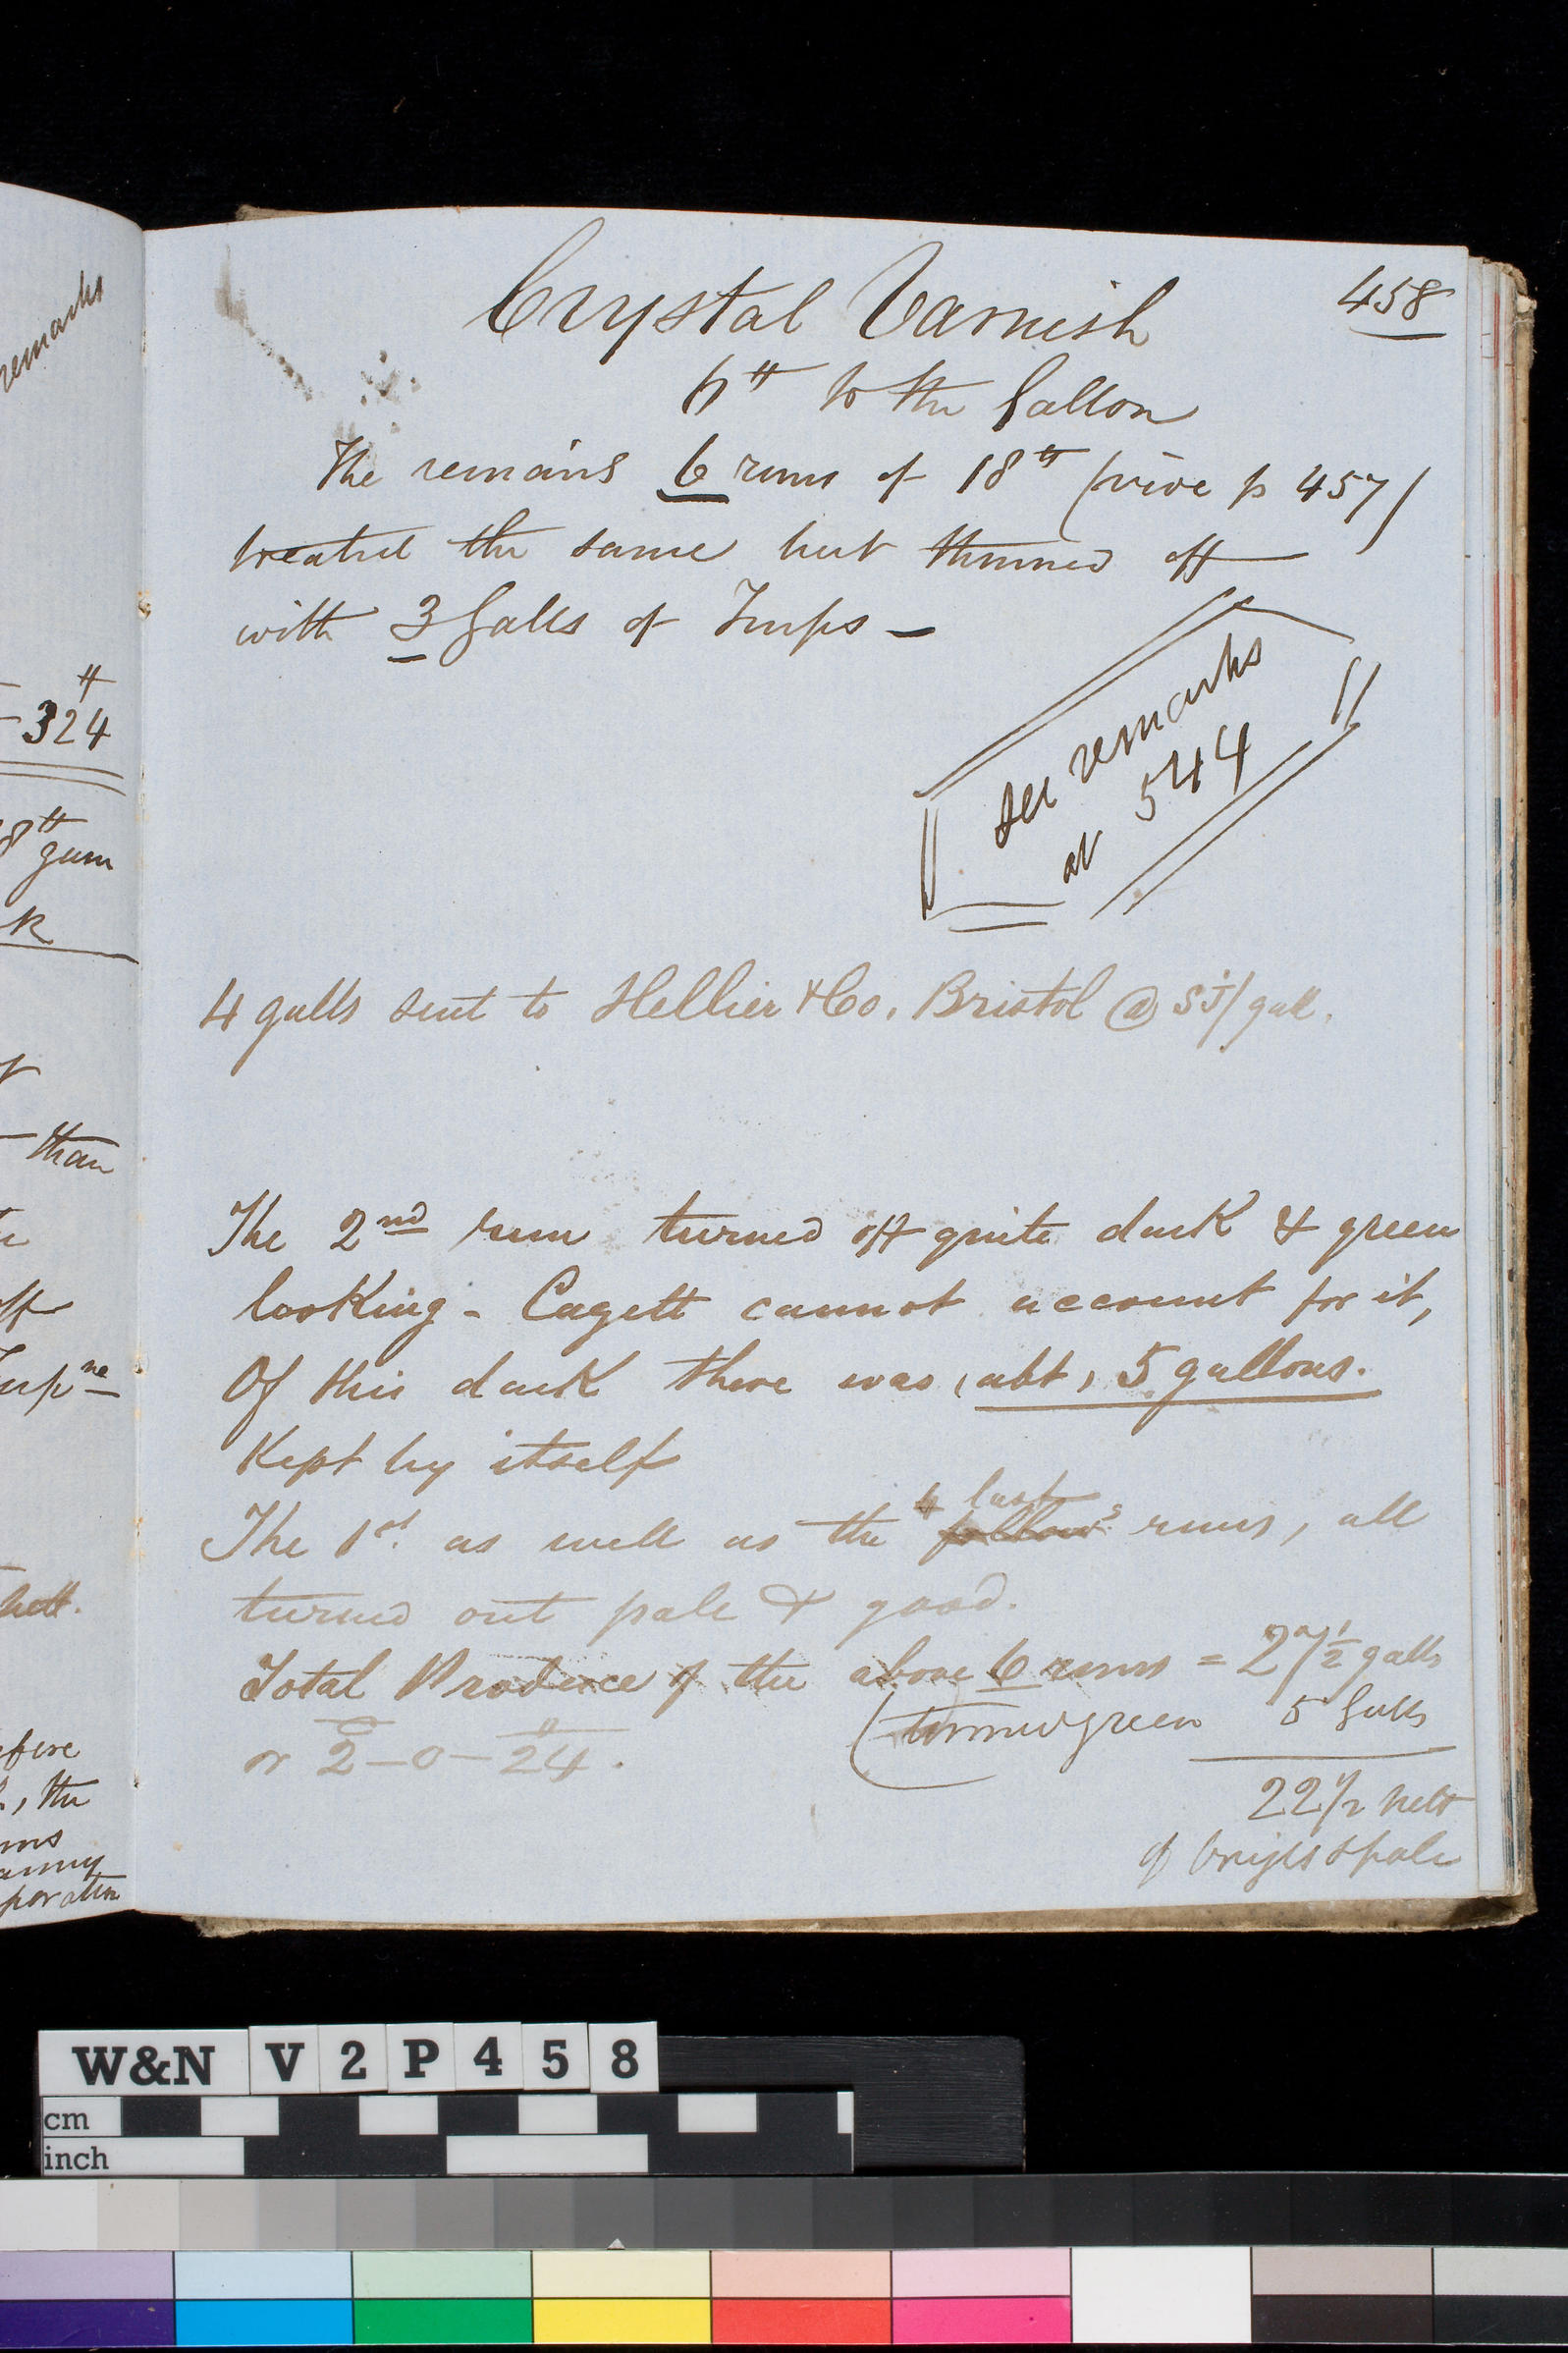 remarks
324
gum
than
hett.
efore
, the
poration
Crystal Varnish
458
6 lb to the Gallon
The remains 6 runs of 18 lb (vide p 457)
treated the same but thinned off
with 3 Galls of Turps –
See remarks
at 544
4 galls sent to Hellier & Co, Bristol @ /gall.
The 2nd run turned off quite dark & green
looking - Cagett cannot account for it,
Of this dark there was, abt, 5 gallons.
Kept by itself
4 last
The 1st. as well as the follow.s runs, all
turned out pale & good.
Total Produce of the above 6 runs = 27 1/2 galls
(turned green 5 Galls
or 2 – 0 – 24.
22 1/2 nett
of bright & pale
W&N V 2 P 4 5 8
cm
inch